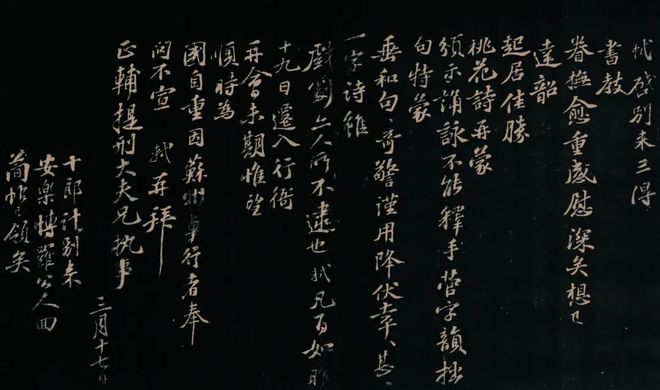 軾啟別來三得
書教
眷撫愈重感慰深矣想已
達韶
起居佳勝
桃花詩再蒙
頒示誦詠不能釋手菅字韻拙
句特蒙
垂和句〻奇警謹用降伏幸〻甚〻
一字詩雖
戲劇亦人所不逮也軾凡百如昨
十九日遷入行衙
再會未期惟望
順時為
國自重因蘇州卓行者奉
問不宣 軾再拜
正輔提刑大夫兄執事
三月十七日
十郎計別來
安樂博羅公人回
簡帖已領矣